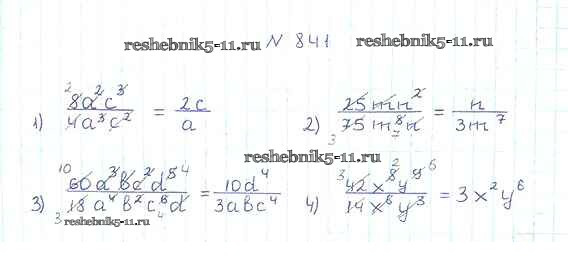 reshebnik5-11.ru N 841 reshebnik5-11.ru
1) 8a²c³ / 4a³c² = 2c / a 2) 25mn² / 75m⁸n = n / 3m⁷
3) 60a³bc²d⁵ / 18a⁴b²c⁶d = 10d⁴ / 3abc⁴ 4) 42x⁸y⁹ / 14x⁶y³ = 3x²y⁶
reshebnik5-11.ru